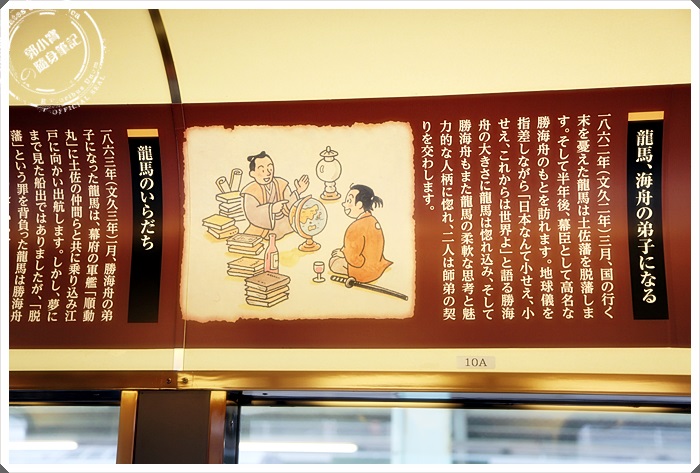 龍馬、海舟の弟子になる
一八六二年（文久二年）三月、国の行く
末を憂えた龍馬は土佐藩を脱藩しま
す。そして半年後、幕臣として高名な
勝海舟のもとを訪れます。地球儀を
指差しながら「日本なんて小せえ、小
せえ、これからは世界よ」と語る勝海
舟の大きさに龍馬は惚れ込み、そして
勝海舟もまた龍馬の柔軟な思考と魅
力的な人柄に惚れ、二人は師弟の契
りを交わします。
龍馬のいらだち
一八六三年（文久三年）一月、勝海舟の弟
子になった龍馬は、幕府の軍艦「順動
丸」に土佐の仲間らと共に乗り込み江
戸に向かい出航します。しかし、夢に
まで見た船出ではありましたが、「脱
藩」という罪を背負った龍馬は勝海舟
10A
郭小寶
の隨身筆記